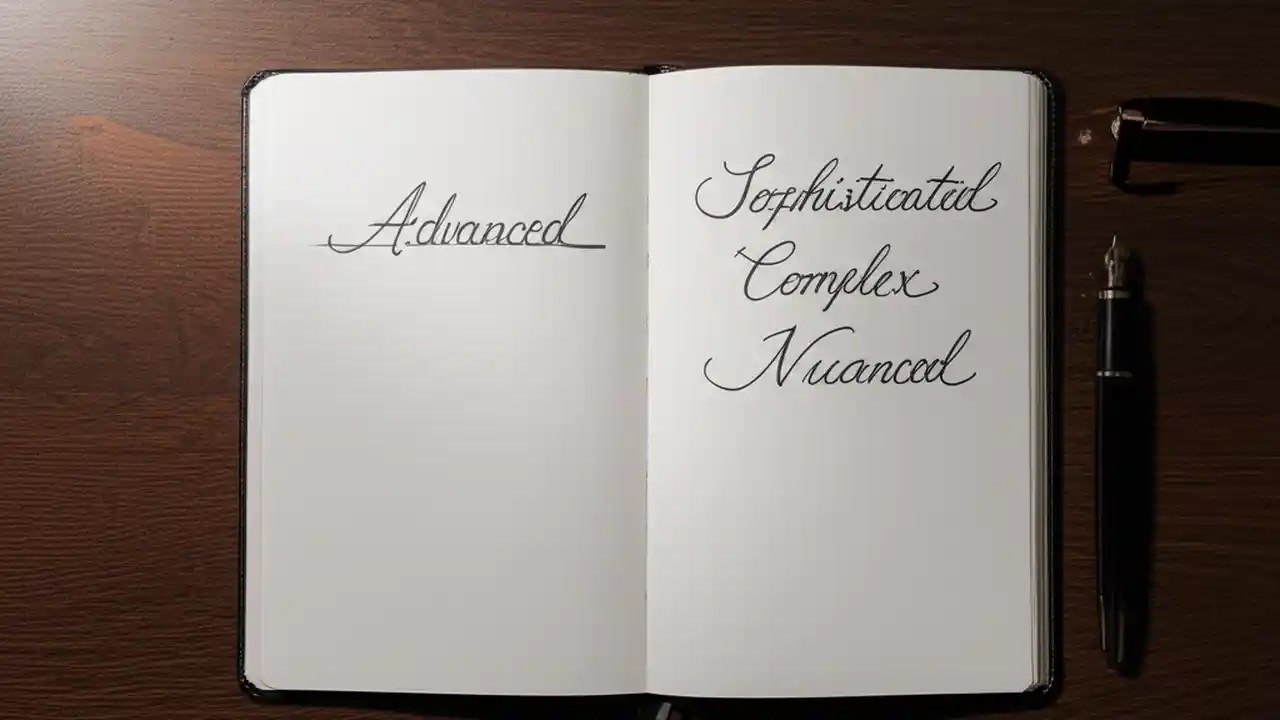 Advanced
Sophisticated
Complex
Nuanced